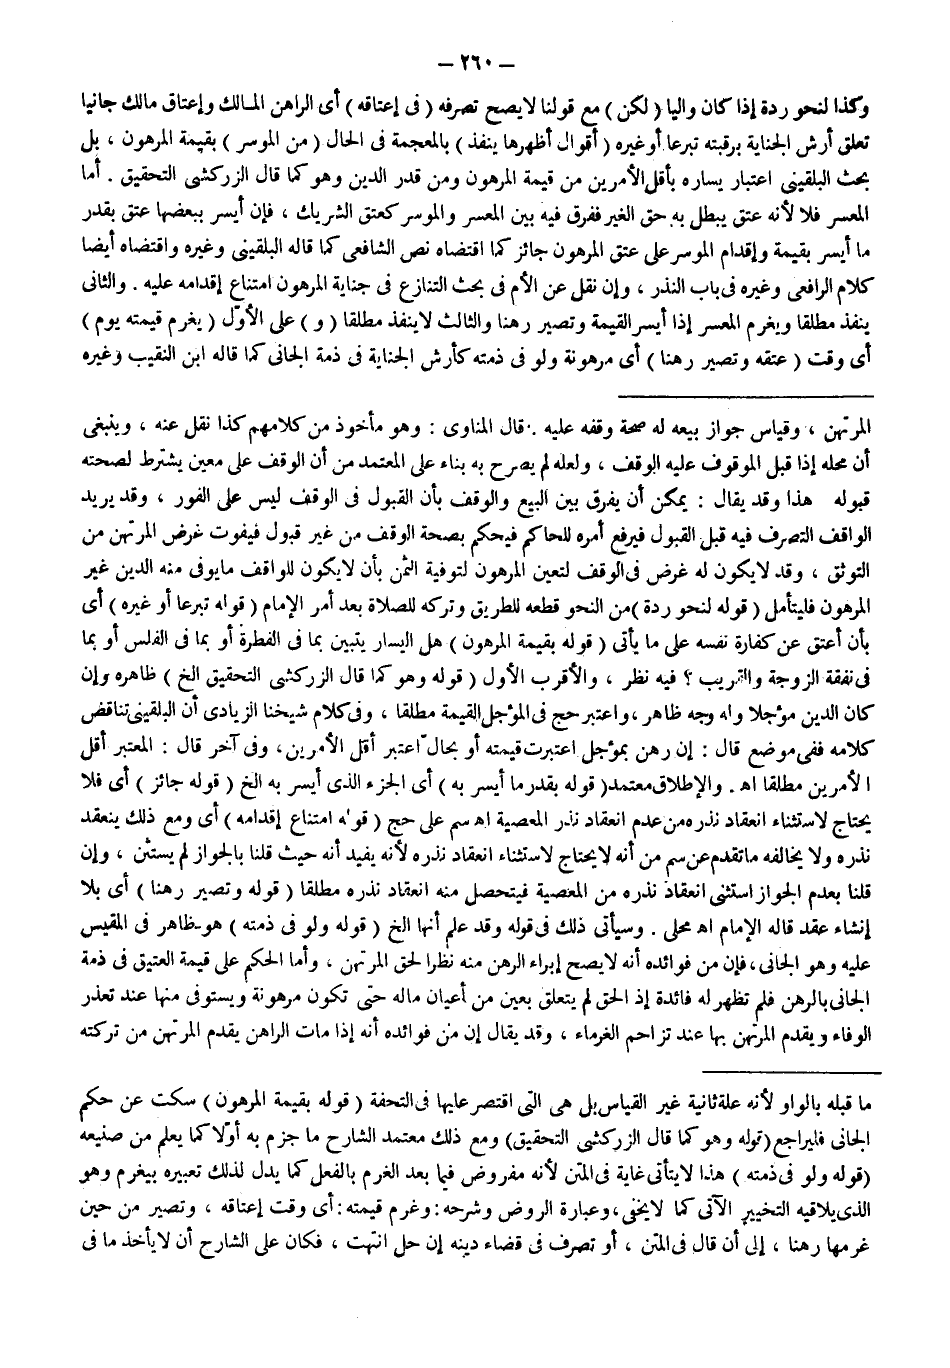 – ٢٦٠ –
وكذا لنحو ردة إذا كان واليا ( لكن ) مع قولنا لايصح تصرفه ( فى إعتاقه ) أى الراهن المالك وإعتاق مالك جانيا
تعلق أرش الجناية برقبته تبرعا أوغيره ( أقوال أظهرها ينفذ ) بالمعجمة فى الحال ( من الموسر ) بقيمة المرهون ، بل
بحث البلقينى اعتبار يساره بأقل الأمرين من قيمة المرهون ومن قدر الدين وهو كما قال الزركشى التحقيق . أما
المعسر فلا لأنه عتق يبطل به حق الغير ففرق فيه بين المعسر والموسر كعتق الشريك ، فإن أيسر ببعضها عتق بقدر
ما أيسر بقيمة وإقدام الموسر على عتق المرهون جائز كما اقتضاه نص الشافعى كما قاله البلقينى وغيره واقتضاه أيضا
كلام الرافعى وغيره فى باب النذر ، وإن نقل عن الأم فى بحث التنازع فى جناية المرهون امتناع إقدامه عليه . والثانى
ينفذ مطلقا ويغرم المعسر إذا أيسر القيمة وتصير رهنا والثالث لاينفذ مطلقا ( و ) على الأوّل ( يغرم قيمته يوم )
أى وقت ( عتقه وتصير رهنا ) أى مرهونة ولو فى ذمته كأرش الجناية فى ذمة الجانى كما قاله ابن النقيب وغيره
المرتهن ، وقياس جواز بيعه له صحة وقفه عليه . قال المناوى : وهو مأخوذ من كلامهم كذا نقل عنه ، وينبغى
أن محله إذا قبل الموقوف عليه الوقف ، ولعله لم يصرح به بناء على المعتمد من أن الوقف على معين يشترط لصحته
قبوله هذا وقد يقال : يمكن أن يفرق بين البيع والوقف بأن القبول فى الوقف ليس على الفور ، وقد يريد
الواقف التصرف فيه قبل القبول فيرفع أمره للحاكم فيحكم بصحة الوقف من غير قبول فيفوت غرض المرتهن من
التوثق ، وقد لايكون له غرض فى الوقف لتعين المرهون لتوفية الثمن بأن لايكون للواقف مايوفى منه الدين غير
المرهون فليتأمل ( قوله لنحو ردة ) من النحو قطعه للطريق وتركه للصلاة بعد أمر الإمام ( قوله تبرعا أو غيره ) أى
بأن أعتق عن كفارة نفسه على ما يأتى ( قوله بقيمة المرهون ) هل اليسار يتبين بما فى الفطرة أو بما فى الفلس أو بما
فى نفقة الزوجة والقريب ؟ فيه نظر ، والأقرب الأول ( قوله وهو كما قال الزركشى التحقيق الخ ) ظاهره وإن
كان الدين مؤجلا وله وجه ظاهر ، واعتبر حج فى المؤجل القيمة مطلقا ، وفى كلام شيخنا الزيادى أن البلقينى تناقض
كلامه ففى موضع قال : إن رهن بمؤجل اعتبرت قيمته أو بحالّ اعتبر أقل الأمرين ، وفى آخر قال : المعتبر أقل
الأمرين مطلقا اه . والإطلاق معتمد ( قوله بقدر ما أيسر به ) أى الجزء الذى أيسر به الخ ( قوله جائز ) أى فلا
يحتاج لاستثناء انعقاد نذره من عدم انعقاد نذر المعصية اه سم على حج ( قوله امتناع إقدامه ) أى ومع ذلك ينعقد
نذره ولا يخالفه ماتقدم عن سم من أنه لايحتاج لاستثناء انعقاد نذره لأنه يفيد أنه حيث قلنا بالجواز لم يستثن ، وإن
قلنا بعدم الجواز استثنى انعقاد نذره من المعصية فيتحصل منه انعقاد نذره مطلقا ( قوله وتصير رهنا ) أى بلا
إنشاء عقد قاله الإمام اه محلى . وسيأتى ذلك فى قوله وقد علم أنها الخ ( قوله ولو فى ذمته ) هو ظاهر فى المقيس
عليه وهو الجانى ، فإن من فوائده أنه لايصح إبراء الرهن منه نظرا لحق المرتهن ، وأما الحكم على قيمة العتيق فى ذمة
الجانى بالرهن فلم تظهر له فائدة إذ الحق لم يتعلق بعين من أعيان ماله حتى تكون مرهونة ويستوفى منها عند تعذر
الوفاء ويقدم المرتهن بها عند تزاحم الغرماء ، وقد يقال إن من فوائده أنه إذا مات الراهن يقدم المرتهن من تركته
ما قبله بالواو لأنه علة ثانية غير القياس بل هى التى اقتصر عليها فى التحفة ( قوله بقيمة المرهون ) سكت عن حكم
الجانى فليراجع ( قوله وهو كما قال الزركشى التحقيق ) ومع ذلك معتمد الشارح ما جزم به أوّلا كما يعلم من صنيعه
( قوله ولو فى ذمته ) هذا لايتأتى غاية فى المتن لأنه مفروض فيما بعد الغرم بالفعل كما يدل لذلك تعبيره بيغرم وهو
الذى يلاقيه التخيير الآتى كما لايخفى ، وعبارة الروض وشرحه : وغرم قيمته : أى وقت إعتاقه ، وتصير من حين
غرمها رهنا ، إلى أن قال فى المتن ، أو تصرف فى قضاء دينه إن حل انتهت ، فكان على الشارح أن لايأخذ ما فى